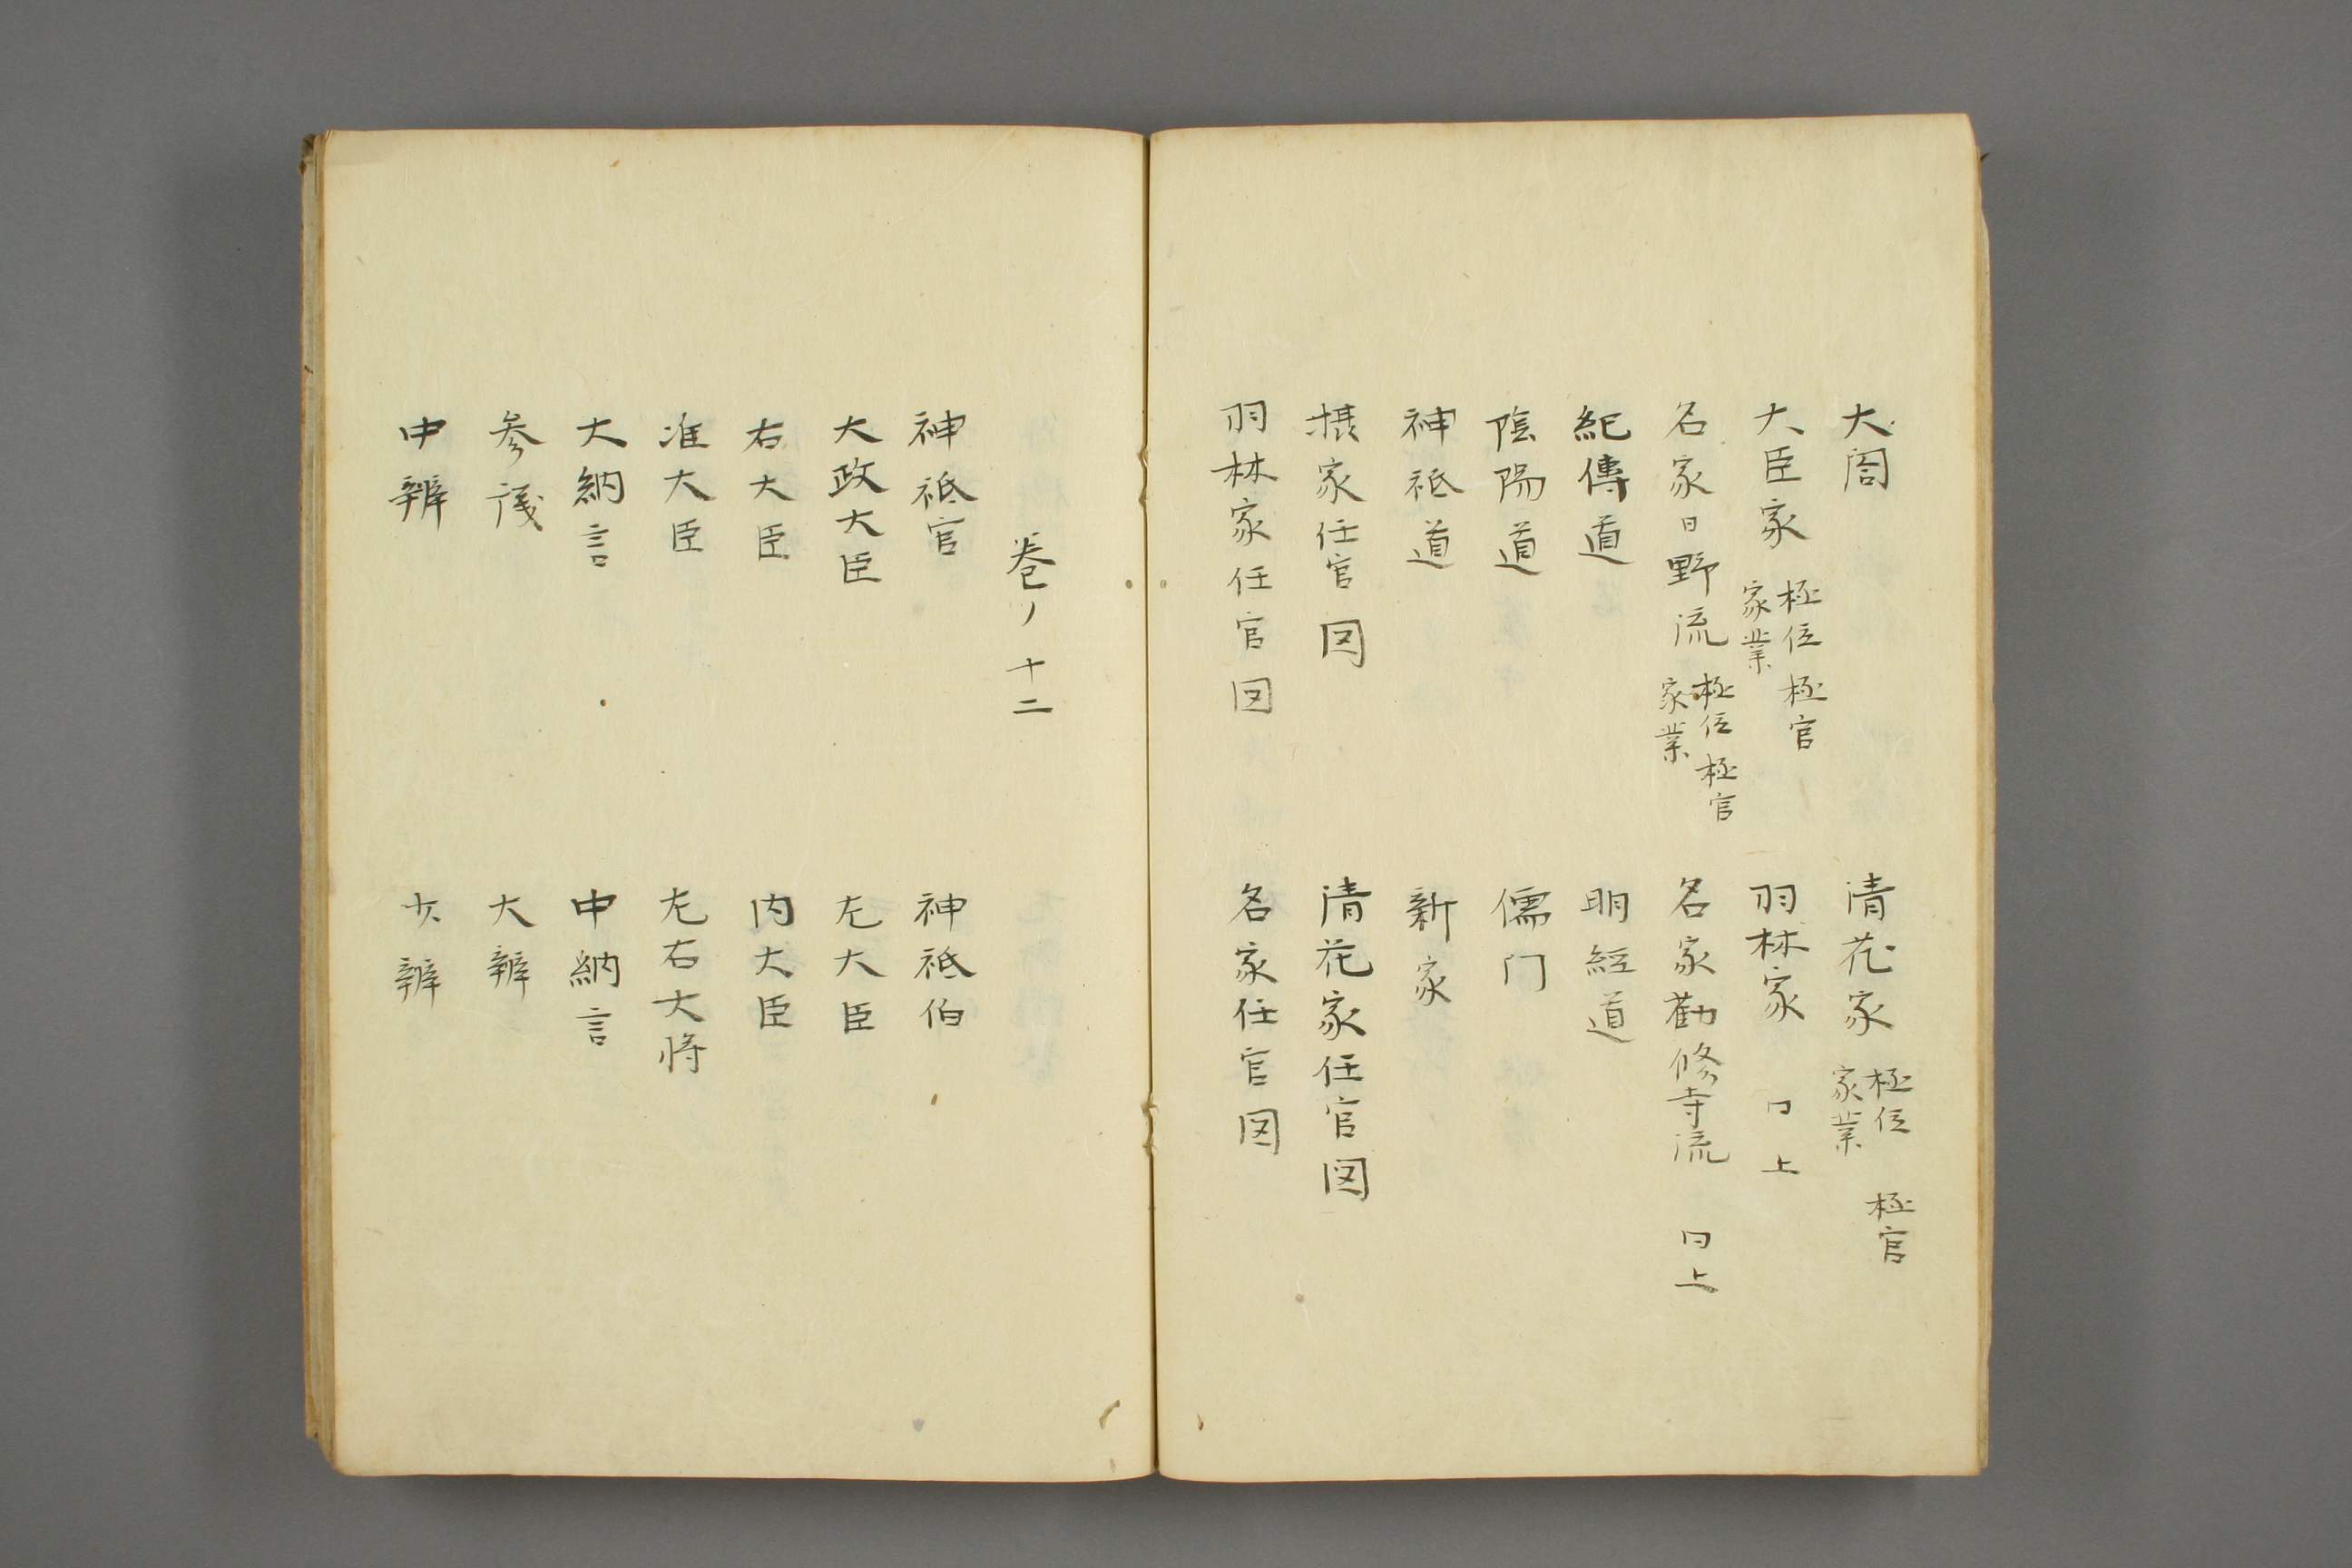 大閤
清花家 極位 極官 家業
大臣家 極位極官 家業
羽林家 同上
名家日野流 極位極官 家業
名家勧修寺流 同上
紀傳道
明経道
陰陽道
儒门
神祇道
新家
摂家任官図
清花家任官図
羽林家任官図
名家任官図
巻ノ十二
神祇官
神祇伯
大政大臣
左大臣
右大臣
内大臣
准大臣
左右大将
大納言
中納言
参議
大辨
中辨
少辨